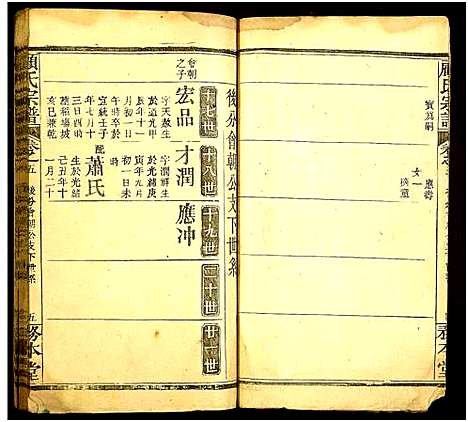 顧氏宗譜
寶嗣
應壽
女一
務本堂
後分會朝公支下世系
十七世
十八世
十九世
二十世
廿一世
會朝之子
宏品
字天敖生
於道光甲
辰年十一
月初一日
午時卒于
宣統壬子
年七月十
三日酉時
葬稻場墈
亥巳兼乾
才潤
字潤祥生
於光緒庚
寅年九月
初一日未
時
配蕭氏
生於光緒
己丑年十
一月二十
應冲
顧氏宗譜
卷之五
後分會朝公支下世系
五
務本堂